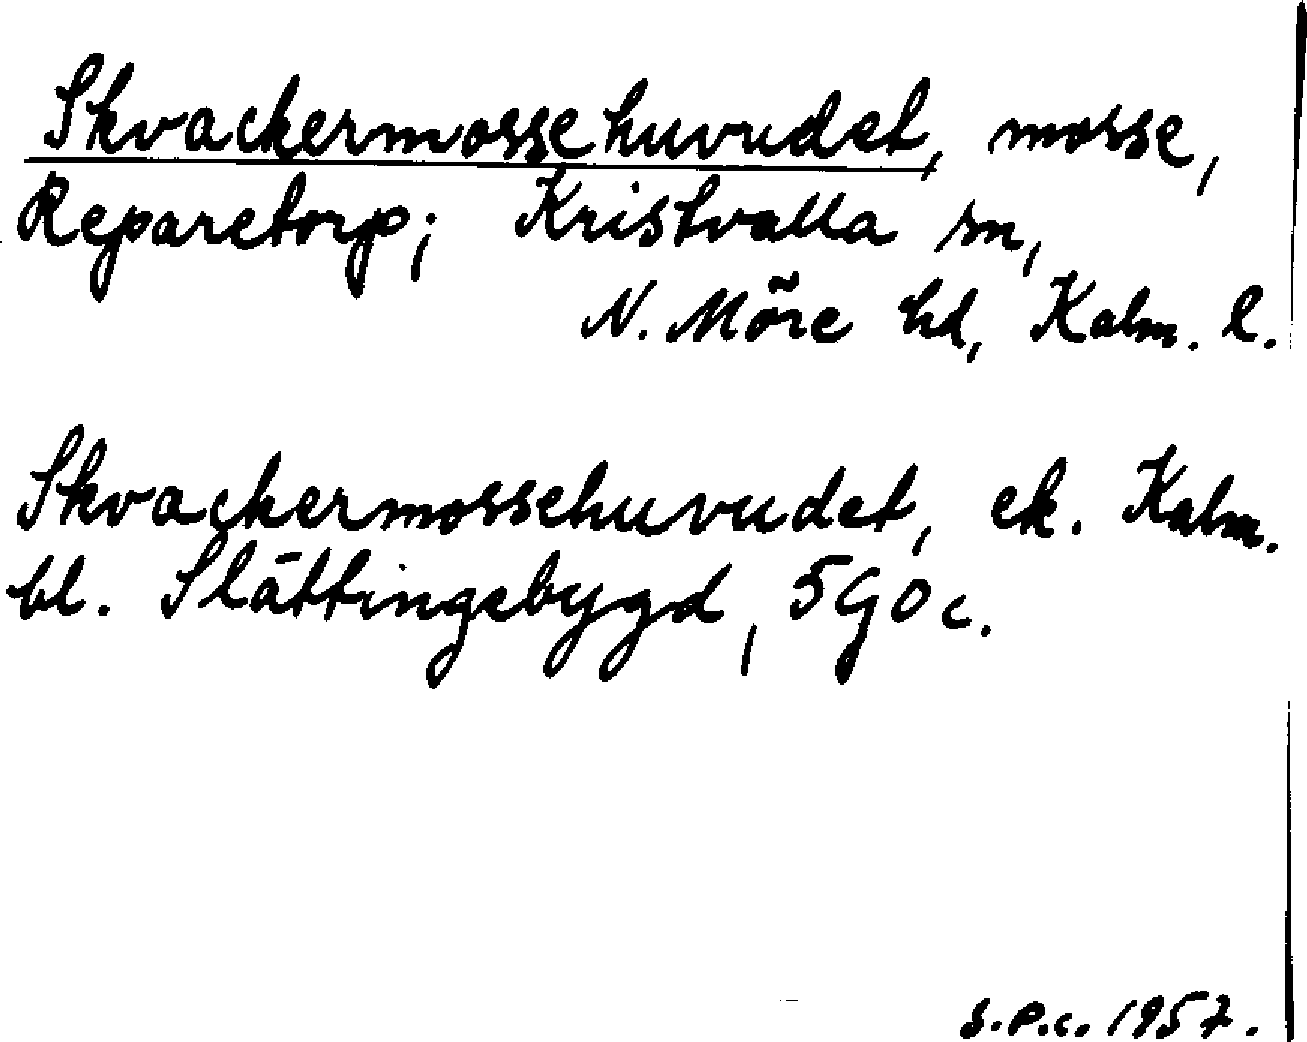 Skvackermossehuvudet, mosse,
Reparetorp; Kristvalla sn,
N. Möre hd, Kalm. l.
Skvackermossehuvudet, ek. Kalm.
bl. Slättingebygd, 5G0c.
S.P.c. 1957.